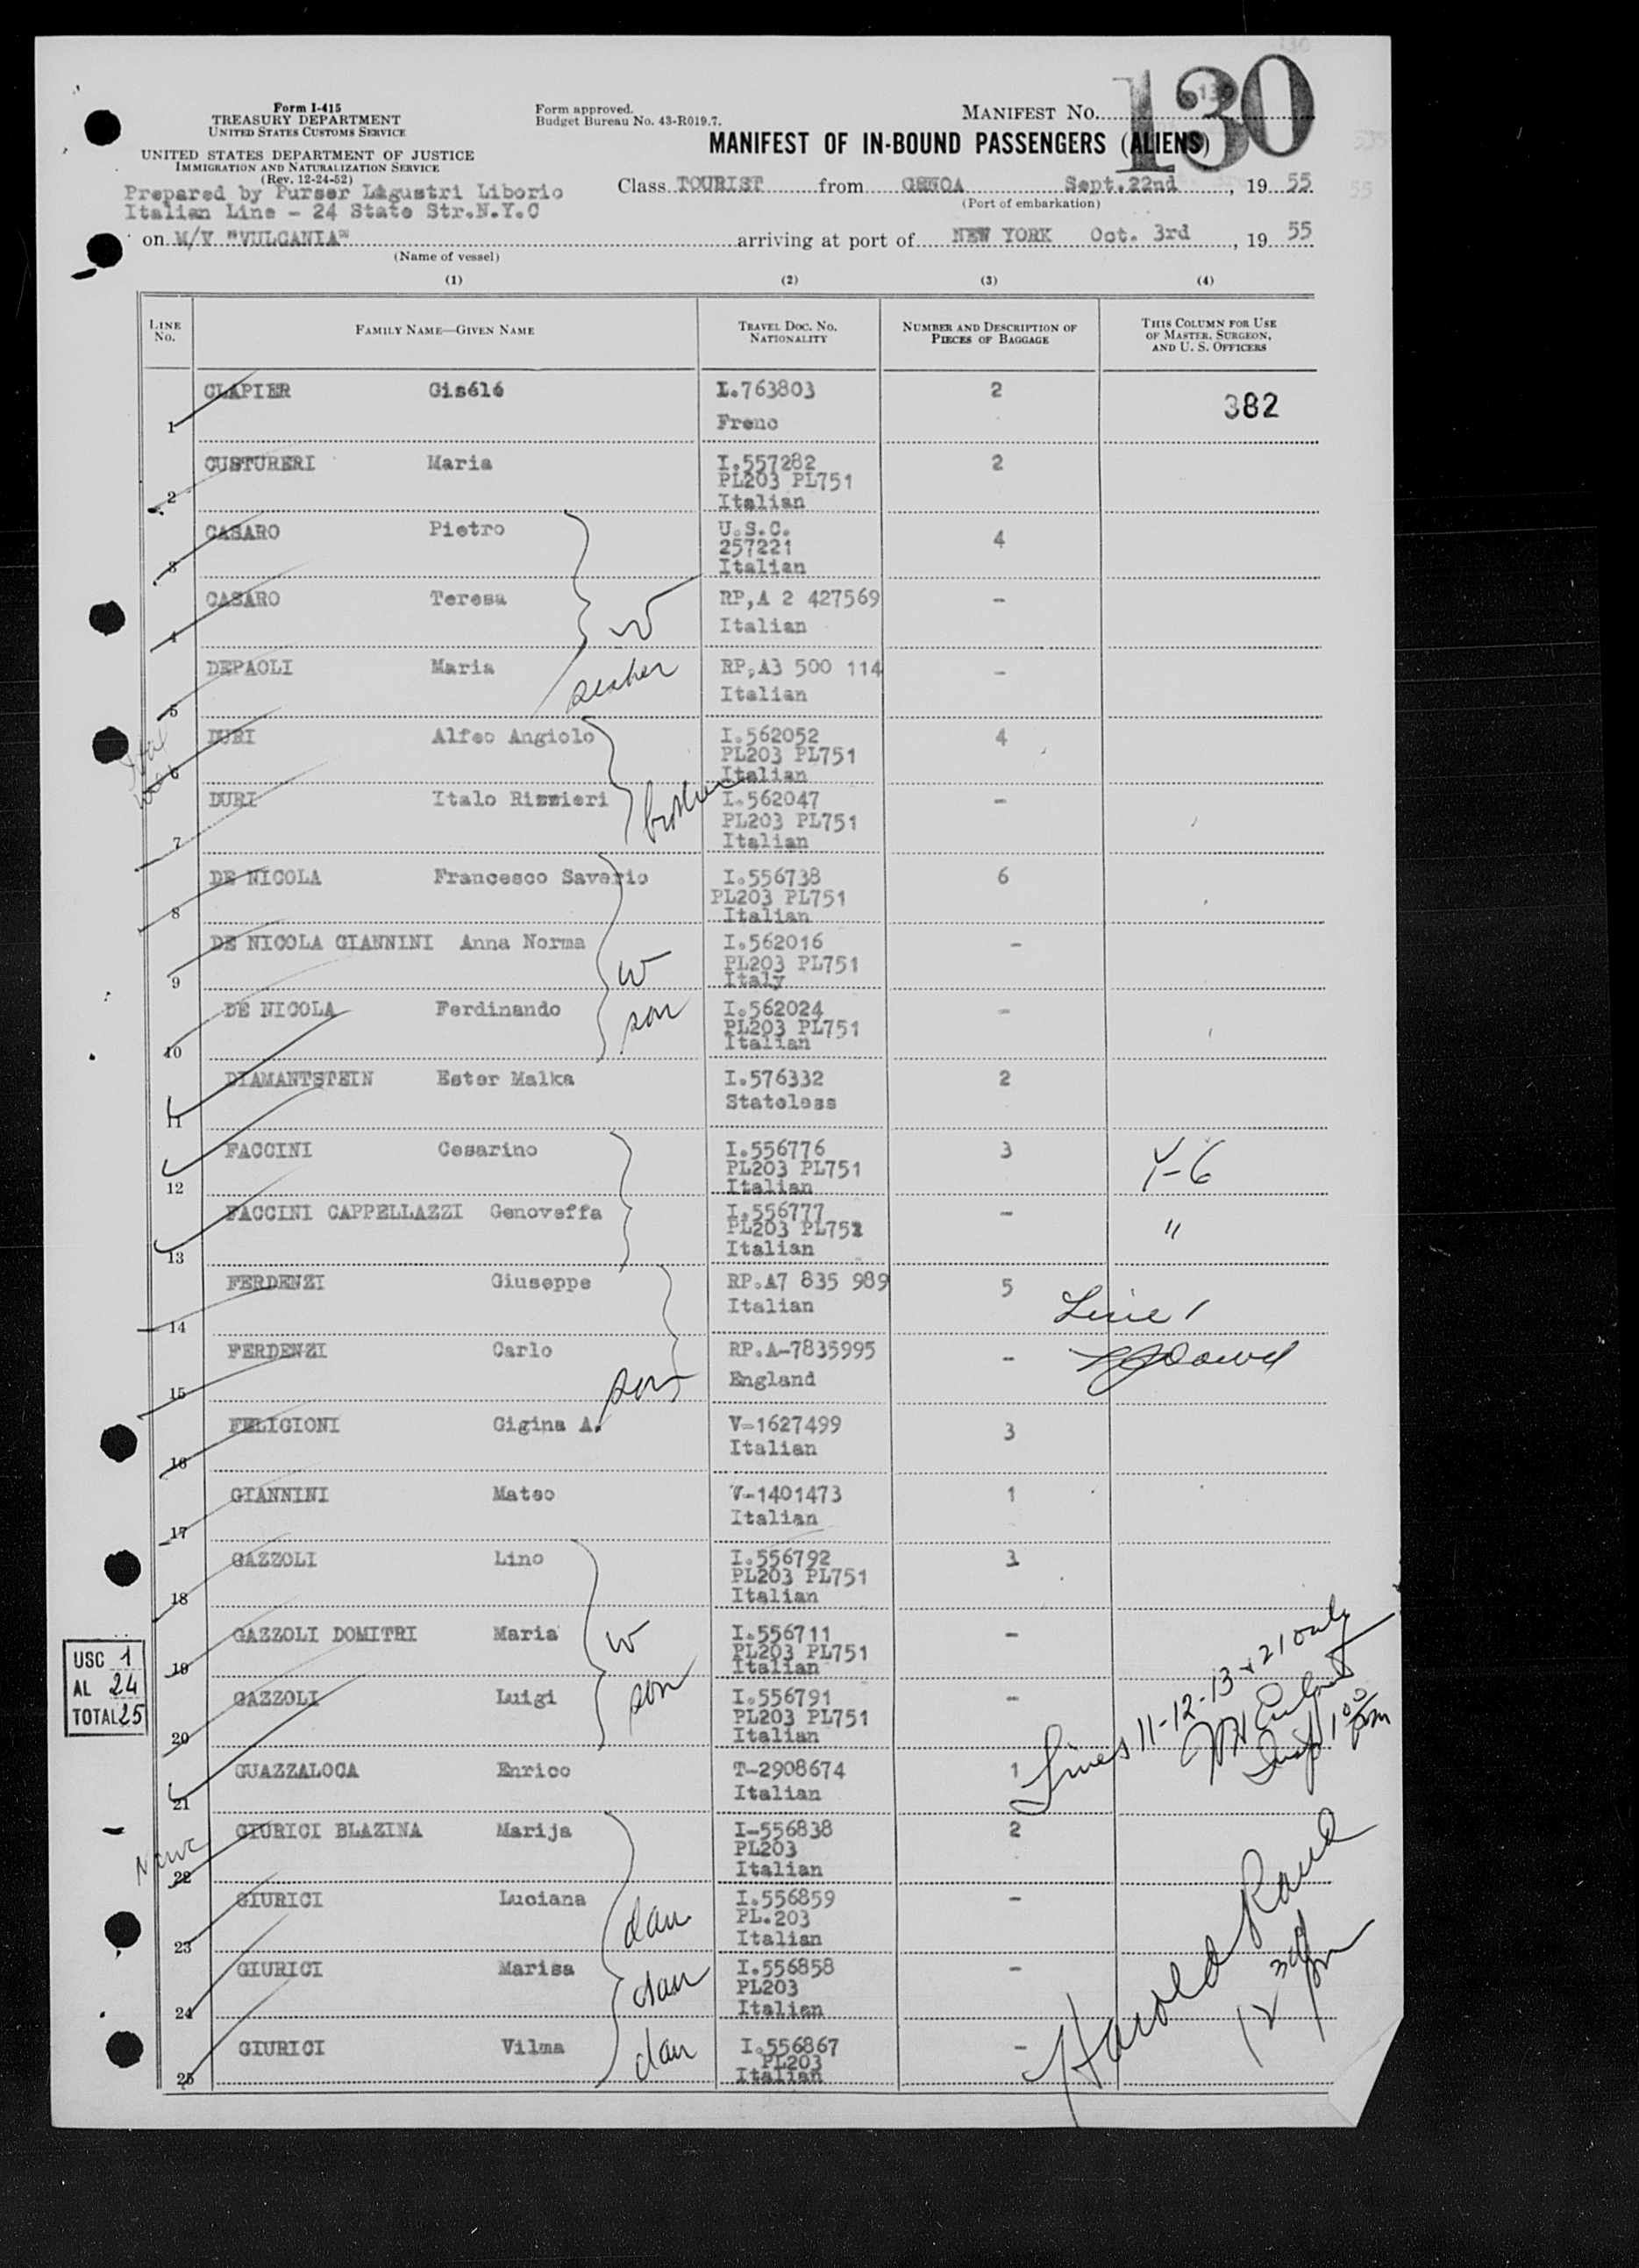 130
Form I-415
TREASURY DEPARTMENT
UNITED STATES CUSTOMS SERVICE
UNITED STATES DEPARTMENT OF JUSTICE
IMMIGRATION AND NATURALIZATION SERVICE
(Rev. 12-24-52)
Prepared by Purser Lagustri Liborio
Italian Line - 24 State Str.N.Y.C
Form approved.
Budget Bureau No. 43-R019.7.
MANIFEST NO. 130
MANIFEST OF IN-BOUND PASSENGERS (ALIENS)
Class TOURIST from GENOA Sept.22nd, 19 55
(Port of embarkation)
on M/V "VULCANIA" arriving at port of NEW YORK Oct. 3rd, 19 55
(Name of vessel)
(1) (2) (3) (4)
LINE No. FAMILY NAME—GIVEN NAME TRAVEL DOC. NO. NATIONALITY NUMBER AND DESCRIPTION OF PIECES OF BAGGAGE THIS COLUMN FOR USE OF MASTER, SURGEON, AND U. S. OFFICERS
1 CLAPIER Gisélé I.763803 2 382
Frenc
2 CUSTURERI Maria I.557282 2
PL203 PL751
Italian
3 CASARO Pietro U.S.C. 4
257221
Italian
4 CASARO Teresa w RP,A 2 427569 -
Italian
5 DEPAOLI Maria RP,A3 500 114 -
Italian
6 DURI Alfeo Angiolo I.562052 4
PL203 PL751
Italian
7 DURI Italo Rizzieri brother I.562047 -
PL203 PL751
Italian
8 DE NICOLA Francesco Saverio I.556738 6
PL203 PL751
Italian
9 DE NICOLA GIANNINI Anna Norma w I.562016 -
PL203 PL751
Italy
10 DE NICOLA Ferdinando son I.562024 -
PL203 PL751
Italian
11 DIAMANTSTEIN Ester Malka I.576332 2
Stateless
12 FACCINI Cesarino I.556776 3 Y-6
PL203 PL751
Italian
13 FACCINI CAPPELLAZZI Genoveffa I.556777 - "
PL203 PL751
Italian
14 FERDENZI Giuseppe RP.A7 835 989 5 Line 1
Italian
15 FERDENZI Carlo son RP.A-7835995 -
England
16 FELIGIONI Gigina A. V-1627499 3
Italian
17 GIANNINI Mateo V-1401473 1
Italian
18 GAZZOLI Lino I.556792 3
PL203 PL751
Italian
19 GAZZOLI DOMITRI Maria w I.556711 -
PL203 PL751
Italian
USC 1
AL 24
TOTAL 25
20 GAZZOLI Luigi son I.556791 -
PL203 PL751
Italian
Lines 11-12-13 & 21 only
21 GUAZZALOCA Enrico T-2908674 1
Italian
22 GIURICI BLAZINA Marija I-556838 2
PL203
Italian
23 GIURICI Luciana dau I.556859 -
PL.203
Italian
24 GIURICI Marisa dau I.556858 -
PL203
Italian
25 GIURICI Vilma dau I.556867 -
PL203
Italian
Harold Rand
12 30 pm